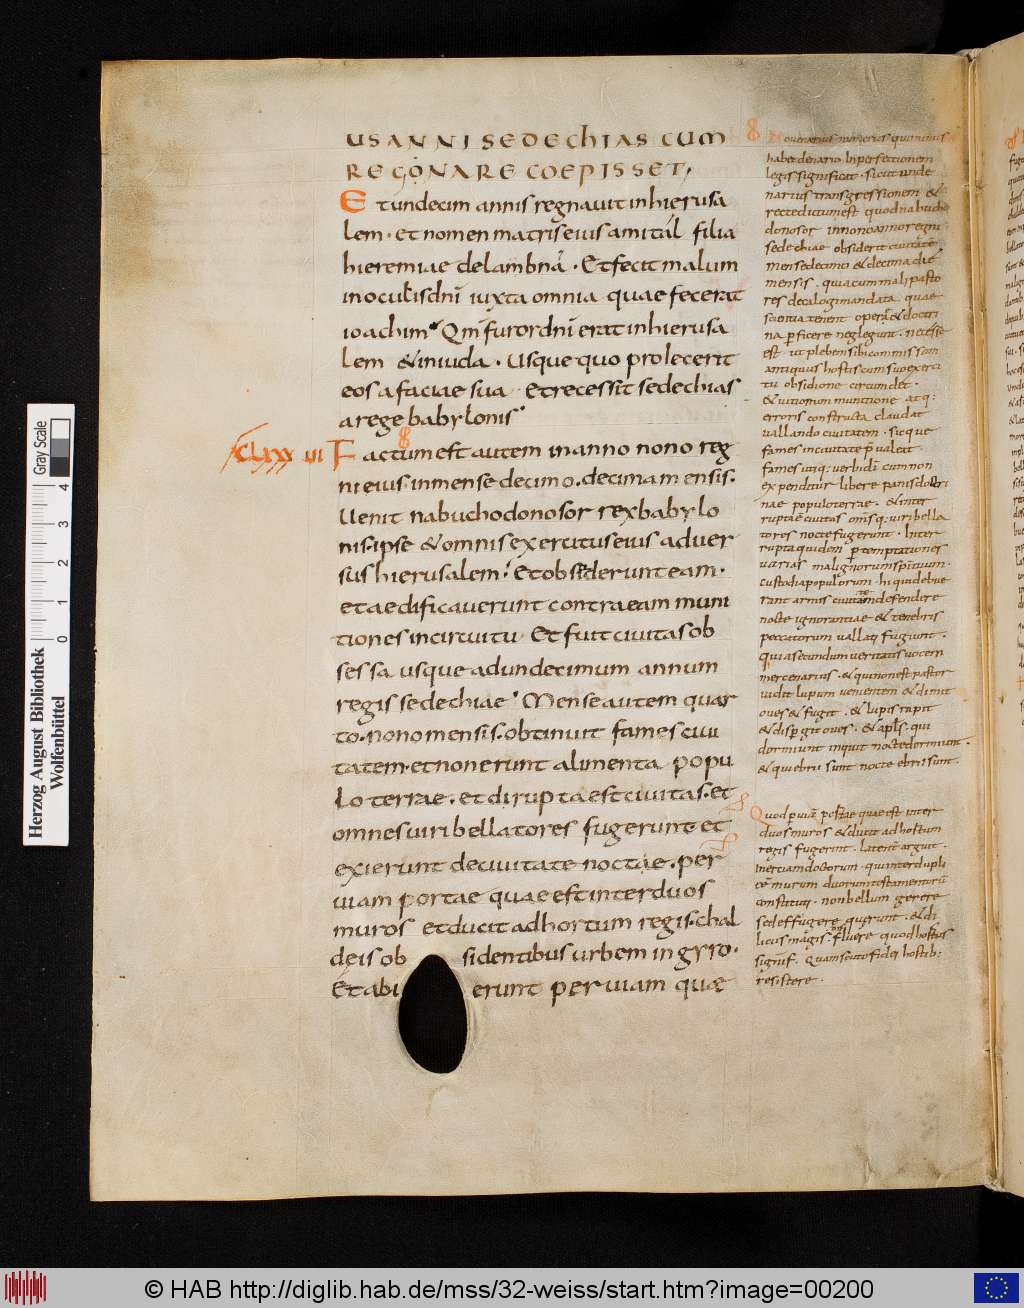 US ANNI SEDECHIAS CUM
REGONARE COEPISSET,
Et undecim annis regnavit in hierusa
lem · et nomen matris eius amital filia
hieremiae delambna · Et fecit malum
in oculis dni iuxta omnia quae fecerat
ioachim · Qm furor dni erat in hierusa
lem & in iuda · Usque quo prolecerit
eos a faciae sua · Et recessit sedechias
a rege babylonis
CLXXVI Factum est autem in anno nono reg
ni eius · in mense decimo · decima mensis ·
Uenit nabuchodonosor rex babylo
nis · ipse & omnis exercitus eius adver
sus hierusalem · Et obsederunt eam ·
et aedificaverunt contra eam muni
tiones in circuitu · Et fuit civitas ob
sessa usque ad undecimum annum
regis sedechiae · Mense autem quar
to · nono mensis · obtinuit fames civi
tatem · et non erunt alimenta popu
lo terrae · et dirupta est civitas · et
omnes viri bellatores fugerunt · et
exierunt de civitate noctae · per
viam portae quae est inter duos
muros et ducit ad hortum regis · chal
deis ob sidentibus urbem in gyro ·
Et abi erunt per viam quae
numerus qui minus
habet denario inperfectionem
legis significat · sicut unde
narius transgressionem &
recte dictum est quod nabucho
donosor in nono anno regni
sedechiae obsiderit civitatē
mense decimo & decima die
mensis · quia cum mali pasto
res decalogi mandata quae
scientia tenent operā & doctri
na pficere neglegunt · necesse
est · ut plebem sibi commissam
antiquus hostis cum suo exerci
tu obsidione circumdet ·
& vitiorum munitione atq:
erroris constructa claudat
vallando civitatem · sicque
fames in civitate pvaleit
fames utiq: verbi di cum non
expenditur libere panis doctri
nae populo terrae · & inter
ruptae civitas oms q: viri bella
tores nocte fugerunt · Inter
rupta quidem p temptationes
varias malignorum spirituum ·
custodia populorum · hi qui debue
rant armis civitatem defendere
nocte ignorantiae & tenebris
peccatorum vallati fugiunt ·
Quia secundum veritatis vocem
mercenarius · & qui non est pastor
vidit lupum venientem & dimit
oves & fugit · & lupis rapit
& dispgit oves · & apls · qui
dormiunt inquit nocte dormiunt ·
& qui ebrii sunt nocte ebrii sunt ·
Quod p viā portae quae est inter
duos muros & ducit ad hortum
regis fugerint · latentē arguit ·
inertiam doctorum · qui inter dupli
cē murum duorum testamentorū
constituti · non bellum gerere
sed effugere querunt · & di
licus magis fluere quod hostus
signif · Quam scuto fidei hostib:
resistere ·
Herzog August Bibliothek
Wolfenbüttel
0 1 2 3 4
Gray Scale
© HAB http://diglib.hab.de/mss/32-weiss/start.htm?image=00200